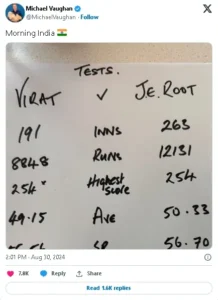 Michael Vaughan
@MichaelVaughan · Follow
Morning India 🇮🇳
TESTS.
VIRAT ✓ J.E. ROOT
191 INNS 263
8848 RUNS 12131
254* Highest Score 254
49.15 AVE 50.33
SR 56.70
2:01 PM · Aug 30, 2024
7.8K Reply Share
Read 1.6K replies